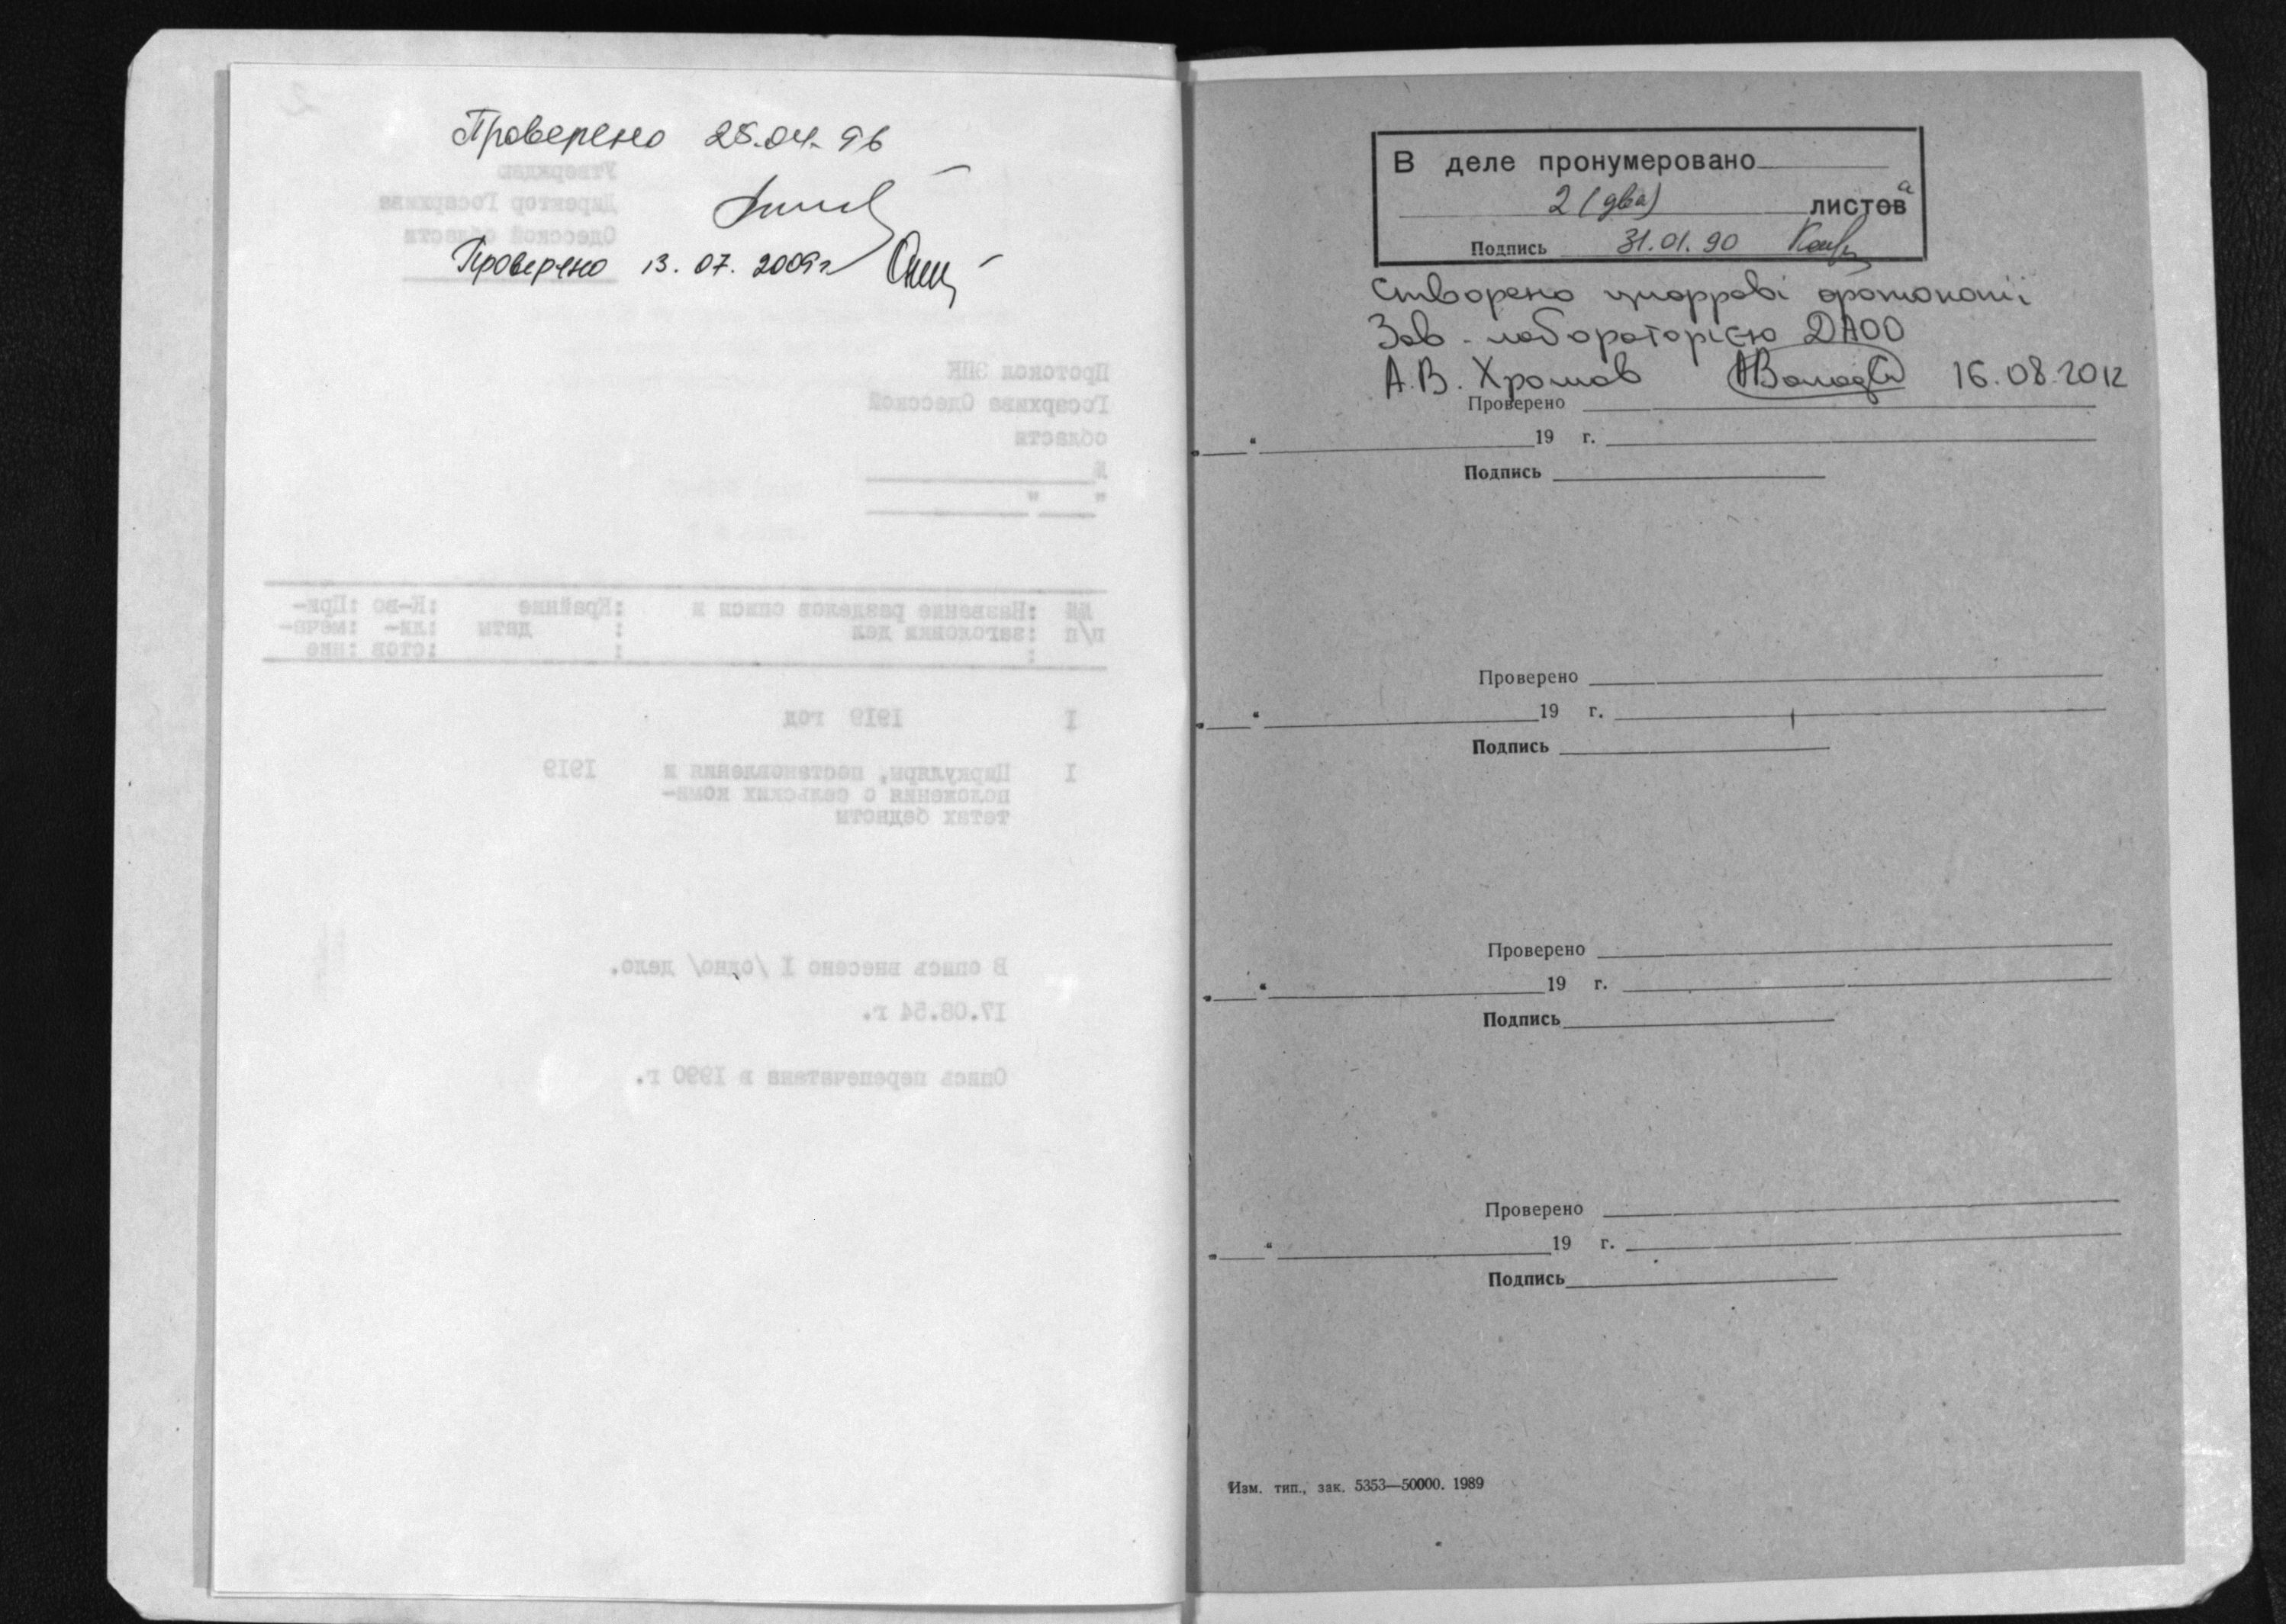 Проверено 25.04.96
Проверено 13.07.2009г
Утверждаю
Директор Госархива
Одесской области
Протокол ЭПК
Госархива Одесской
области
№
" "
№№ :Название разделов описи и :Крайние :К-во :При-
п/п :заголовки дел : даты :ли- :меча-
: : :стов :ние
I 1919 год
I Циркуляры, постановления и 1919
положения о сельских коми-
тетах бедноты
В опись внесено I /одно/ дело.
17.08.54 г.
Опись перепечатана в 1990 г.
В деле пронумеровано
2 (два) листов а
Подпись 31.01.90
Створено цифрові фотокопії
Зав. лабораторією ДАОО
А.В. Хромов 16.08.2012
Проверено
„ “ 19 г.
Подпись
Проверено
„ “ 19 г.
Подпись
Проверено
„ “ 19 г.
Подпись
Проверено
„ “ 19 г.
Подпись
Изм. тип., зак. 5353—50000. 1989